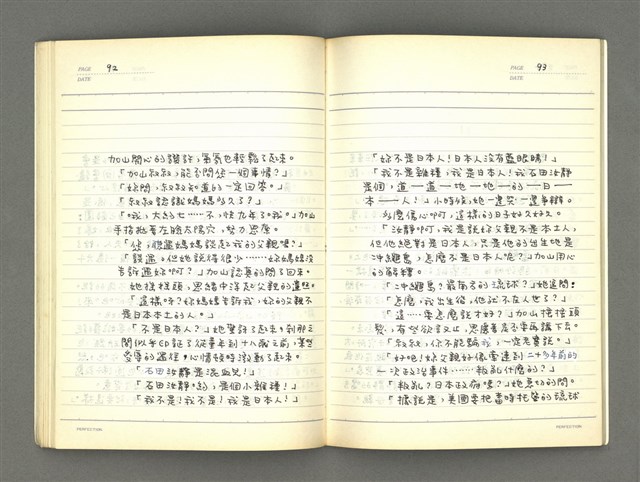 PAGE 92
DATE
加山開心的讚許，氣氛也輕鬆了起來。
「加山叔叔，能否問您一個事情？」
「妳問，叔叔知道的一定回答。」
「叔叔認識媽媽多久了？」
「哦，大約七……不，快九年了。我。」加山
手指抵著左臉太陽穴，努力思索。
「您，聽過媽媽談起我的父親嗎？」
「談過。但她說得很少……妳媽媽沒
告訴過妳啊？」加山認真的問了回來。
她搖搖頭，思緒中浮起父親的
「這樣呀？妳媽媽告訴我，妳的父親不
是日本本土的人。」
「不是日本人？」她驚訝了起來。剎那之
間似乎印証了從童年到十八歲之前，某些
受辱的過程。心情頓時激動了起來。
「石田汝靜是混血兒！」
「石田汝靜，是個小雜種！」
「我不是！我不是！我是日本人！」
PERFECTION
PAGE 93
DATE
「妳不是日本人！日本人沒有藍眼睛！」
「我不是雜種，我是日本人！我石田汝靜
是個，道—道—地—地—的—日—
本—人！」小時候，她一邊哭一邊爭辯。
多麼傷心啊，這樣的日子好久好久。
「汝靜啊，我是說妳父親不是本土人，
但他絕對是日本人，只是他的出生地是
沖繩島，怎麼不是日本人呢？」加山開心
的解釋。
「沖繩島？最南方的琉球？」她追問：
「怎麼，我出生後，他就不在人世了？」
「這……要怎麼說才好？」加山搔搔頭
髮，有些欲言又止，思慮著是否要再講下去。
「叔叔，你不能騙我，一定要說。」
「好吧！妳父親好像牽連到二十多年前的
一次政治事件……叛亂什麼的？」
「叛亂？日本政府嗎？」她急切的問。
「據說是，美國要把當時托管的琉球
PERFECTION